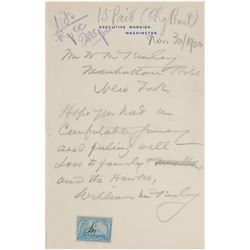 15 Paid
EXECUTIVE MANSION,
WASHINGTON.
Nov. 30/1900
Mrs W McKinley
Manhattan Hotel
New York
Hope you had a
Comfortable journey
and feeling well
Love to family
and the Hawks,
William McKinley